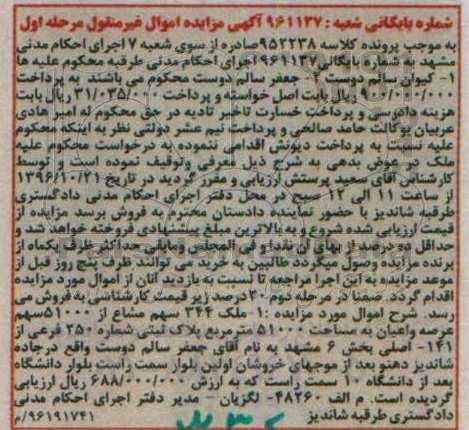 شماره بایگانی شعبه : ۹۶۱۱۳۷ آگهی مزایده اموال غیرمنقول مرحله اول
به موجب پرونده کلاسه ۹۵۲۲۳۸ صادره از سوی شعبه ۷ اجرای احکام مدنی
مشهد به شماره بایگانی ۹۶۱۱۳۷ اجرای احکام مدنی طرقبه محکوم علیه ها
۱- کیوان سالم دوست ۲- جعفر سالم دوست محکوم می باشند به پرداخت
۹۰۰/۰۰۰/۰۰۰ ریال بابت اصل خواسته و پرداخت ۳۱/۰۳۵/۰۰۰ ریال بابت
هزینه دادرسی و پرداخت خسارت تاخیر تادیه در حق محکوم له امیر هادی
عربیان بوکالت حامد صالحی و پرداخت نیم عشر دولتی نظر به اینکه محکوم
علیه نسبت به پرداخت دیونش اقدامی ننموده به درخواست محکوم علیه
ملک در عوض بدهی به شرح ذیل معرفی وتوقیف نموده است و توسط
کارشناس آقای سعید پرستش ارزیابی و مقرر گردید در تاریخ ۱۳۹۶/۱۰/۲۱
از ساعت ۱۱ الی ۱۲ صبح در محل دفتر اجرای احکام مدنی دادگستری
طرقبه شاندیز با حضور نماینده دادستان محترم به فروش برسد مزایده از
قیمت ارزیابی شده شروع و به بالاترین مبلغ پیشنهادی فروخته خواهد شد و
حداقل ده درصد از بهای آن نقدا و فی المجلس ومابقی حداکثر ظرف یکماه از
برنده مزایده وصول میگردد طالبین به خرید می توانند ظرف پنج روز قبل از
موعد مزایده به این اجرا مراجعه تا نسبت به بازدید آنان از اموال مورد مزایده
اقدام گردد. ضمنا در مرحله دوم ۲۰درصد زیر قیمت کارشناسی به فروش می
رسد. شرح اموال مورد مزایده :۱-ملک ۳۴۴ سهم مشاع از ۵۱۰۰۰سهم
عرصه واعیان به مساحت ۵۱۰۰۰ مترمربع پلاک ثبتی شماره ۲۵۰ فرعی از
۱۴۱- اصلی بخش ۶ مشهد به نام آقای جعفر سالم دوست واقع درجاده
شاندیز دهنو بعد از موجهای خروشان اولین بلوار سمت راست بلوار دانشگاه
بعد از دانشگاه ۱۰ سمت راست که به ارزش ۶۸۸/۰۰۰/۰۰۰ ریال ارزیابی
گردیده است. م الف ۴۸۲۶۰- لگزیان - مدیر دفتر اجرای احکام مدنی
دادگستری طرقبه شاندیز ۹۶۱۹۱۷۴۱/م